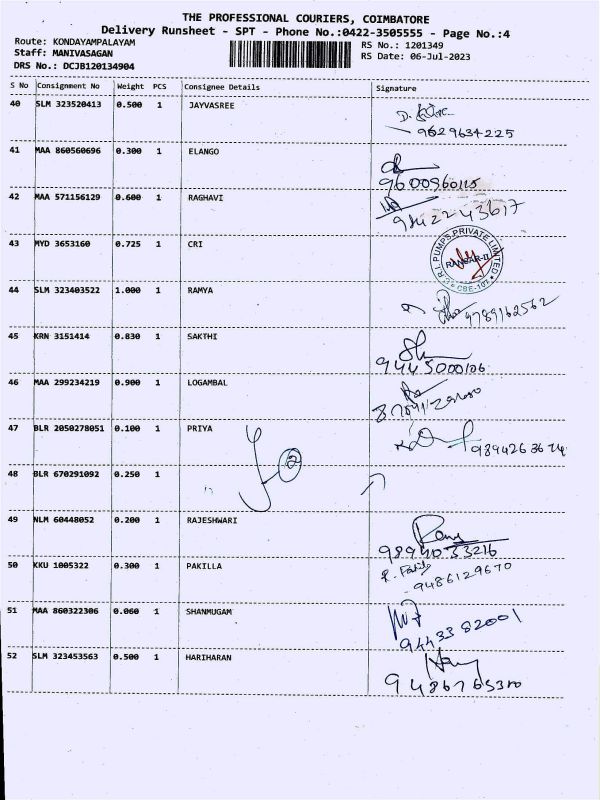 THE PROFESSIONAL COURIERS, COIMBATORE
Delivery Runsheet - SPT - Phone No.:0422-3505555 - Page No.:4
Route: KONDAYAMPALAYAM
Staff: MANIVASAGAN
DRS No.: DCJB120134904
RS No.: 1201349
RS Date: 06-Jul-2023
S No Consignment No Weight PCS Consignee Details Signature
40 SLM 323520413 0.500 1 JAYVASREE
9629634225
41 MAA 860560696 0.300 1 ELANGO
9600960115
42 MAA 571156129 0.600 1 RAGHAVI
9842243617
43 MYD 3653160 0.725 1 CRI
C.R.I. PUMPS PRIVATE LIMITED
CBE-107
44 SLM 323403522 1.000 1 RAMYA
9789162562
45 KRN 3151414 0.830 1 SAKTHI
9445000106
46 MAA 299234219 0.900 1 LOGAMBAL
47 BLR 2050278051 0.100 1 PRIYA
48 BLR 670291092 0.250 1
49 NLM 60448052 0.200 1 RAJESHWARI
9894033216
50 KKU 1005322 0.300 1 PAKILLA
9486129670
51 MAA 860322306 0.060 1 SHANMUGAM
9443382001
52 SLM 323453563 0.500 1 HARIHARAN
Hary